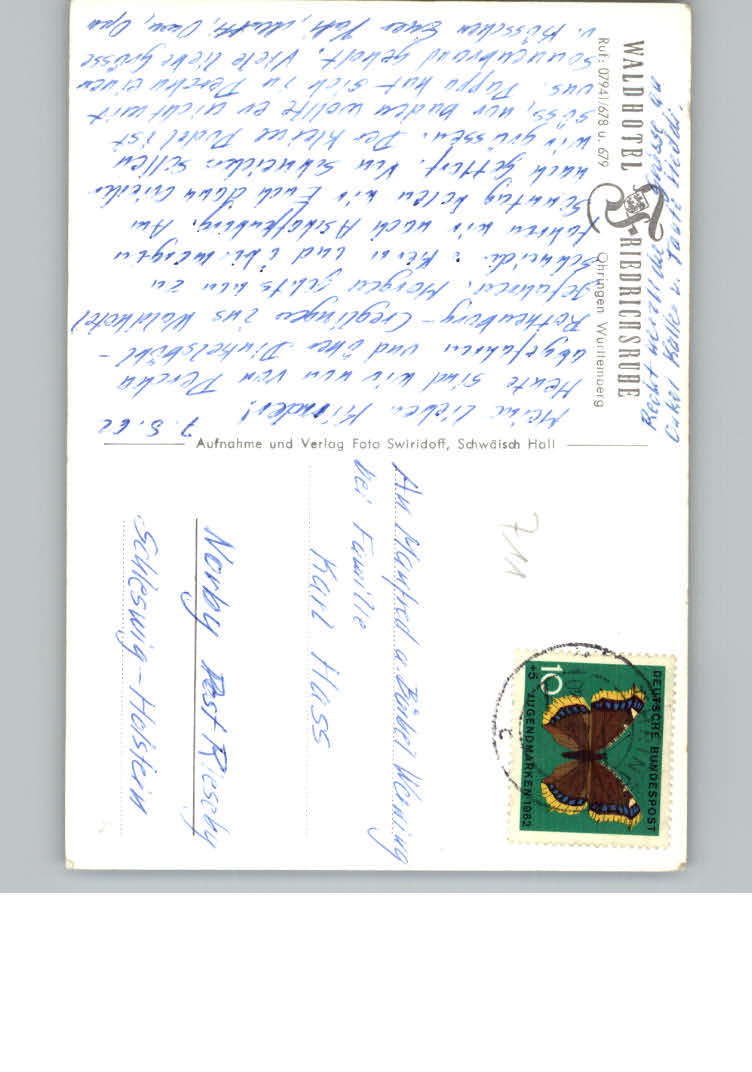 WALDHOTEL FRIEDRICHSRUHE
Ruf: 07941/678 u. 679 Öhringen Württemberg
7.8.62
Meine lieben Kinder!
Heute sind wir nun von Percha
abgefahren und über Dinkelsbühl -
Rothenburg - Creglingen ins Waldhotel
gefahren. Morgen gehts nun zu
Schneid. und übermorgen
fahren wir nach Aschaffenburg. Am
Sonntag holen wir Euch dann wieder
nach Hottorf. Von Schneiders sollen
wir grüssen. Der kleine Pudel ist
süss, nur baden wollte er nicht mit
uns. Pappa hat sich in Percha einen
Sonnenbrand geholt. Viele liebe Grüsse
u. Küsschen Euer Vati, Mutti, Oma, Opa
Recht herzliche Grüsse an
Onkel Kalle u. Tante Frieda.
Aufnahme und Verlag Foto Swiridoff, Schwäbisch Hall
An Manfred u. Bärbel Wening
bei Familie
Karl Hass
Norby Post Rieseby
Schleswig-Holstein
711
DEUTSCHE BUNDESPOST
10
+5 JUGENDMARKEN 1962